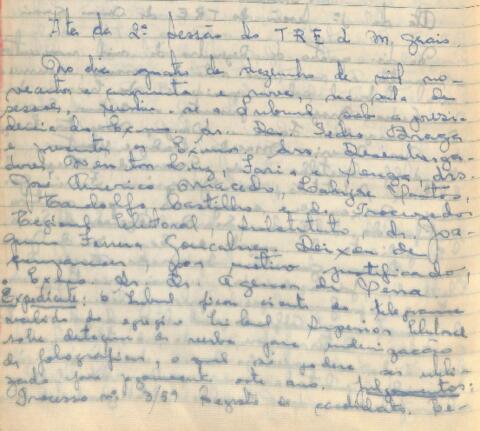 Ata da 2ª sessão do TRE de M. Gerais.
No dia quatro de dezembro de mil no-
vecentos e cinquenta e nove, na sala de
sessões, reuniu-se o Tribunal sob a presi-
dência do Exmo. Sr. Des. Pedro Braga
e presentes os Exmos. Srs. Desembarga-
dores, Souza, drs.
José Américo Macedo,
Castilho e o Procurador
Regional Eleitoral, substituto dr. Joa-
quim Ferreira Gonçalves. Deixou de
comparecer, por motivo justificado,
o Exmo. Sr. Dr. Agenor de Sena.
Expediente: o Tribunal ficou ciente do telegrama
recebido do egrégio Tribunal Superior Eleitoral
sobre de verba para indenização
de fotografias, o qual não poderá ser utili-
zado para pagamento este ano. Julgamentos:
Processo nº 3/59 Registro de candidatos. Re-